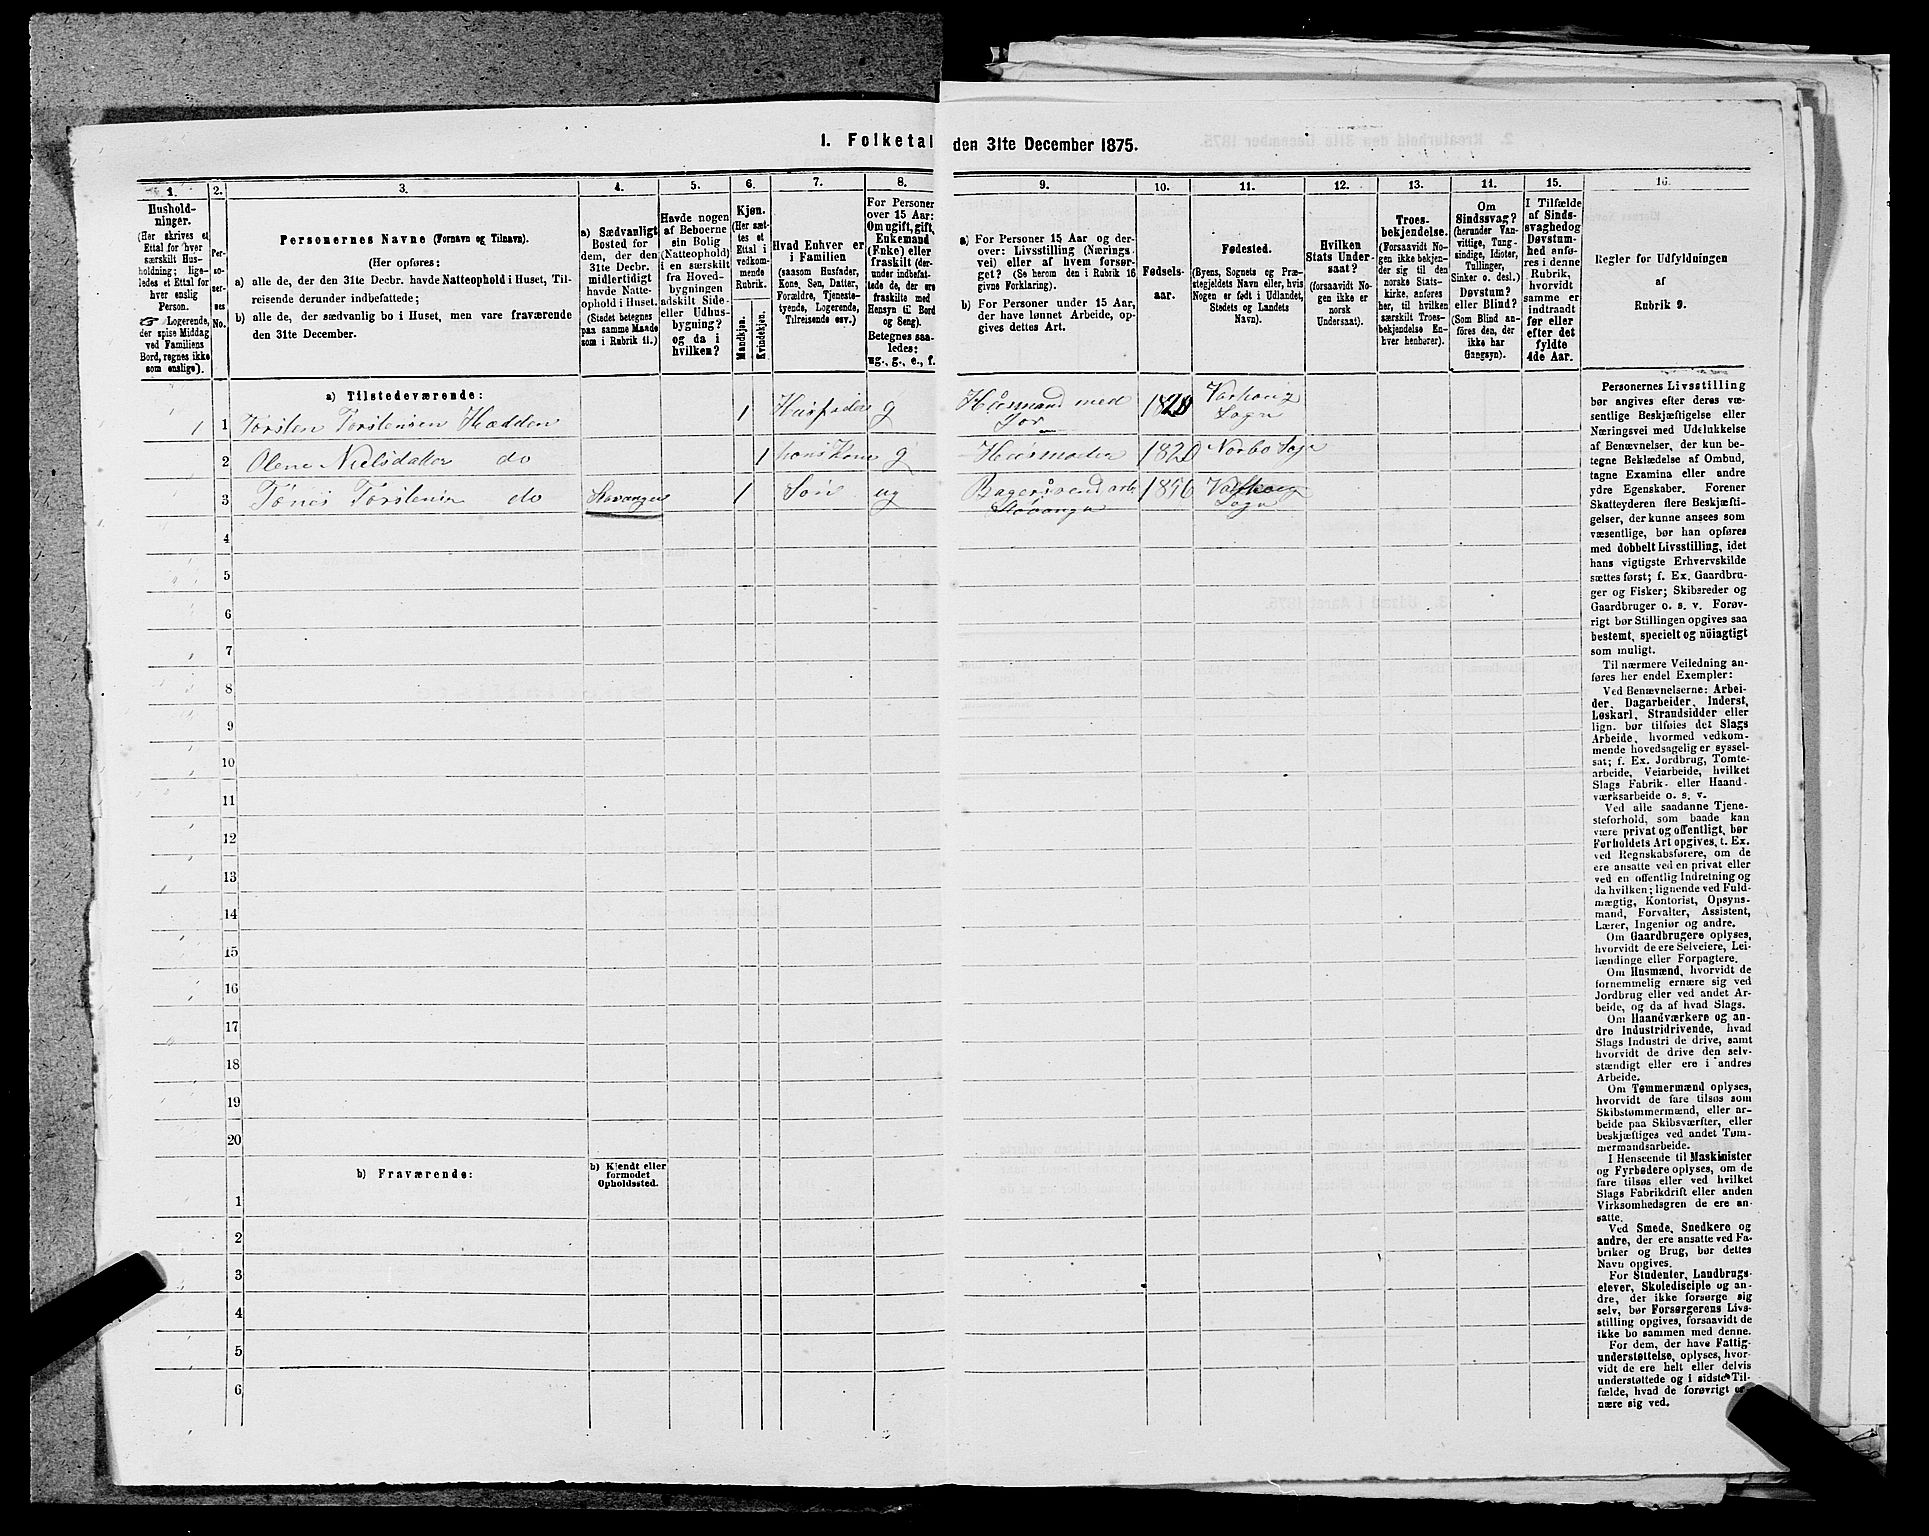 1. Folketal den 31te December 1875.
1.
2.
3.
4.
5.
6.
7.
8.
9.
10.
11.
12.
13.
11.
15.
16.
Hushold-
ninger.
(Her skrives et
Ettal for hver
særskilt Hus-
holdning; lige-
ledes et Ettal for
hver enslig
Person.
☞ Logerende,
der spise Middag
ved Familiens
Bord, regnes ikke
som enslige).
Per-
so-
ner-
nes
No.
Personernes Navne (Fornavn og Tilnavn).
(Her opføres:
a) alle de, der den 31te Decbr. havde Natteophold i Huset, Til-
reisende derunder indbefattede;
b) alle de, der sædvanlig bo i Huset, men vare fraværende
den 31te December.
a) Sædvanligt
Bosted for
dem, der den
31te Decbr.
midlertidigt
havde Natte-
ophold i Huset.
(Stedet betegnes
paa samme Maade
som i Rubrik 11.)
Havde nogen
af Beboerne
sin Bolig
(Natteophold)
i en særskilt
fra Hoved-
bygningen
adskilt Side-
eller Udhus-
bygning?
og da i
hvilken?
Kjøn.
(Her sæt-
tes et
Ettal i
vedkom-
mende
Rubrik.
Mandkjøn.
Kvindekjøn.
Hvad Enhver er
i Familien
(saasom Husfader,
Kone, Søn, Datter,
Forældre, Tjeneste-
tyende, Logerende,
Tilreisende osv.)
For Personer
over 15 Aar:
Om ugift, gift,
Enkemand
(Enke) eller
fraskilt (der-
under indbefat-
tede de, der ere
fraskilte med
Hensyn til Bord
og Seng).
Betegnes saa-
ledes:
ug., g., e., f.
a) For Personer 15 Aar og der-
over: Livsstilling (Nærings-
vei) eller af hvem forsør-
get? (Se herom den i Rubrik 16
givne Forklaring).
b) For Personer under 15 Aar,
der have lønnet Arbeide, op-
gives dettes Art.
Fødsels-
aar.
Fødested.
(Byens, Sognets og Præ-
stegjeldets Navn eller, hvis
Nogen er født i Udlandet,
Stedets og Landets
Navn).
Hvilken
Stats Under-
saat?
(forsaavidt No-
gen ikke er
norsk
Undersaat).
Troes-
bekjendelse.
(Forsaavidt No-
gen ikke bekjen-
der sig til den
norske Stats-
kirke, anføres
her, til hvilken
særskilt Troes-
bekjendelse En-
hver henhører).
Om
Sindssvag?
(herunder Van-
vittige, Tung-
sindige, Idioter,
Tullinger,
Sinker o. desl.)
Døvstum?
eller Blind?
(Som Blind an-
føres den, der
ikke har
Gangsyn).
I Tilfælde
af Sinds-
svaghed og
Døvstum-
hed anfø-
res i denne
Rubrik,
hvorvidt
samme er
indtraadt
før eller
efter det
fyldte
4de Aar.
Regler for Udfyldningen
af
Rubrik 9.
a) Tilstedeværende:
1 1 Torsten Torstensen Hadden 1 Husfader g Huusmand med Jor 18 Sogn
2 Olene Nielsdatter do 1 hans Kone g Huusmoder 1820 Norbo Sogn
3 Tønes Torstensen do Stavanger 1 Søn ug Bagersvend Stavanger 1856 Sogn
4
5
6
7
8
9
10
11
12
13
14
15
16
17
18
19
20
b) Fraværende:
b) Kjendt eller
formodet
Opholdssted.
1
2
3
4
5
6
Personernes Livsstilling
bør angives efter deres væ-
sentlige Beskjæftigelse eller
Næringsvei med Udelukkelse
af Benævnelser, der kun be-
tegne Beklædelse af Ombud,
tagne Examina eller andre
ydre Egenskaber. Forener
Skatteyderen flere Beskjæfti-
gelser, der kunne ansees som
væsentlige, bør han opføres
med dobbelt Livsstilling, idet
hans vigtigste Erhvervskilde
sættes først; f. Ex. Gaardbru-
ger og Fisker; Skibsreder og
Gaardbruger o. s. v. Forøv-
rigt bør Stillingen opgives saa
bestemt, specielt og nöiagtigt
som muligt.
Til nærmere Veiledning an-
føres her endel Exempler:
Ved Benævnelserne: Arbei-
der, Dagarbeider, Inderst,
Løskarl, Strandsidder eller
lign. bør tilføies det Slags
Arbeide, hvormed vedkom-
mende hovedsagelig er syssel-
sat; f. Ex. Jordbrug, Tomte-
arbeide, Veiarbeide, hvilket
Slags Fabrik- eller Haand-
værksarbeide o. s. v.
Ved alle saadanne Tjene-
steforhold, som baade kan
være privat og offentligt, bør
Forholdets Art opgives, t. Ex.
ved Regnskabsførere, om de
ere ansatte ved en privat eller
ved en offentlig Indretning og
da hvilken; lignende ved Fuld-
mægtig, Kontorist, Opsyns-
mand, Forvalter, Assistent,
Lærer, Ingeniør og andre.
Om Gaardbrugere oplyses,
hvorvidt de ere Selveiere, Lei-
lændinge eller Forpagtere.
Om Husmænd, hvorvidt de
fornemmelig ernære sig ved
Jordbrug eller ved andet Ar-
beide, og da af hvad Slags.
Om Haandværkere og an-
dre Industridrivende, hvad
Slags Industri de drive, samt
hvorvidt de drive den selv-
stændigt eller ere i andres
Arbeide.
Om Tømmermænd oplyses,
hvorvidt de fare tilsøs som
Skibstømmermænd, eller ar-
beide paa Skibsværfter, eller
beskjæftiges ved andet Tøm-
mermandsarbeide.
I Henseende til Maskinister
og Fyrbødere oplyses, om de
fare tilsøs eller ved hvilket
Slags Fabrikdrift eller anden
Virksomhedsgren de ere an-
satte.
Ved Smede, Snedkere og
andre, der ere ansatte ved Fa-
briker og Brug, bør dettes
Navn opgives.
For Studenter, Landbrugs-
elever, Skoledisciple og an-
dre, der ikke forsørge sig
selv, bør Forsørgerens Livs-
stilling opgives, forsaavidt de
ikke bo sammen med denne.
For dem, der have Fattig-
understøttelse, oplyses, hvor-
vidt de ere helt eller delvis
understøttede og i sidste Til-
fælde, hvad de forøvrigt er-
nære sig ved.